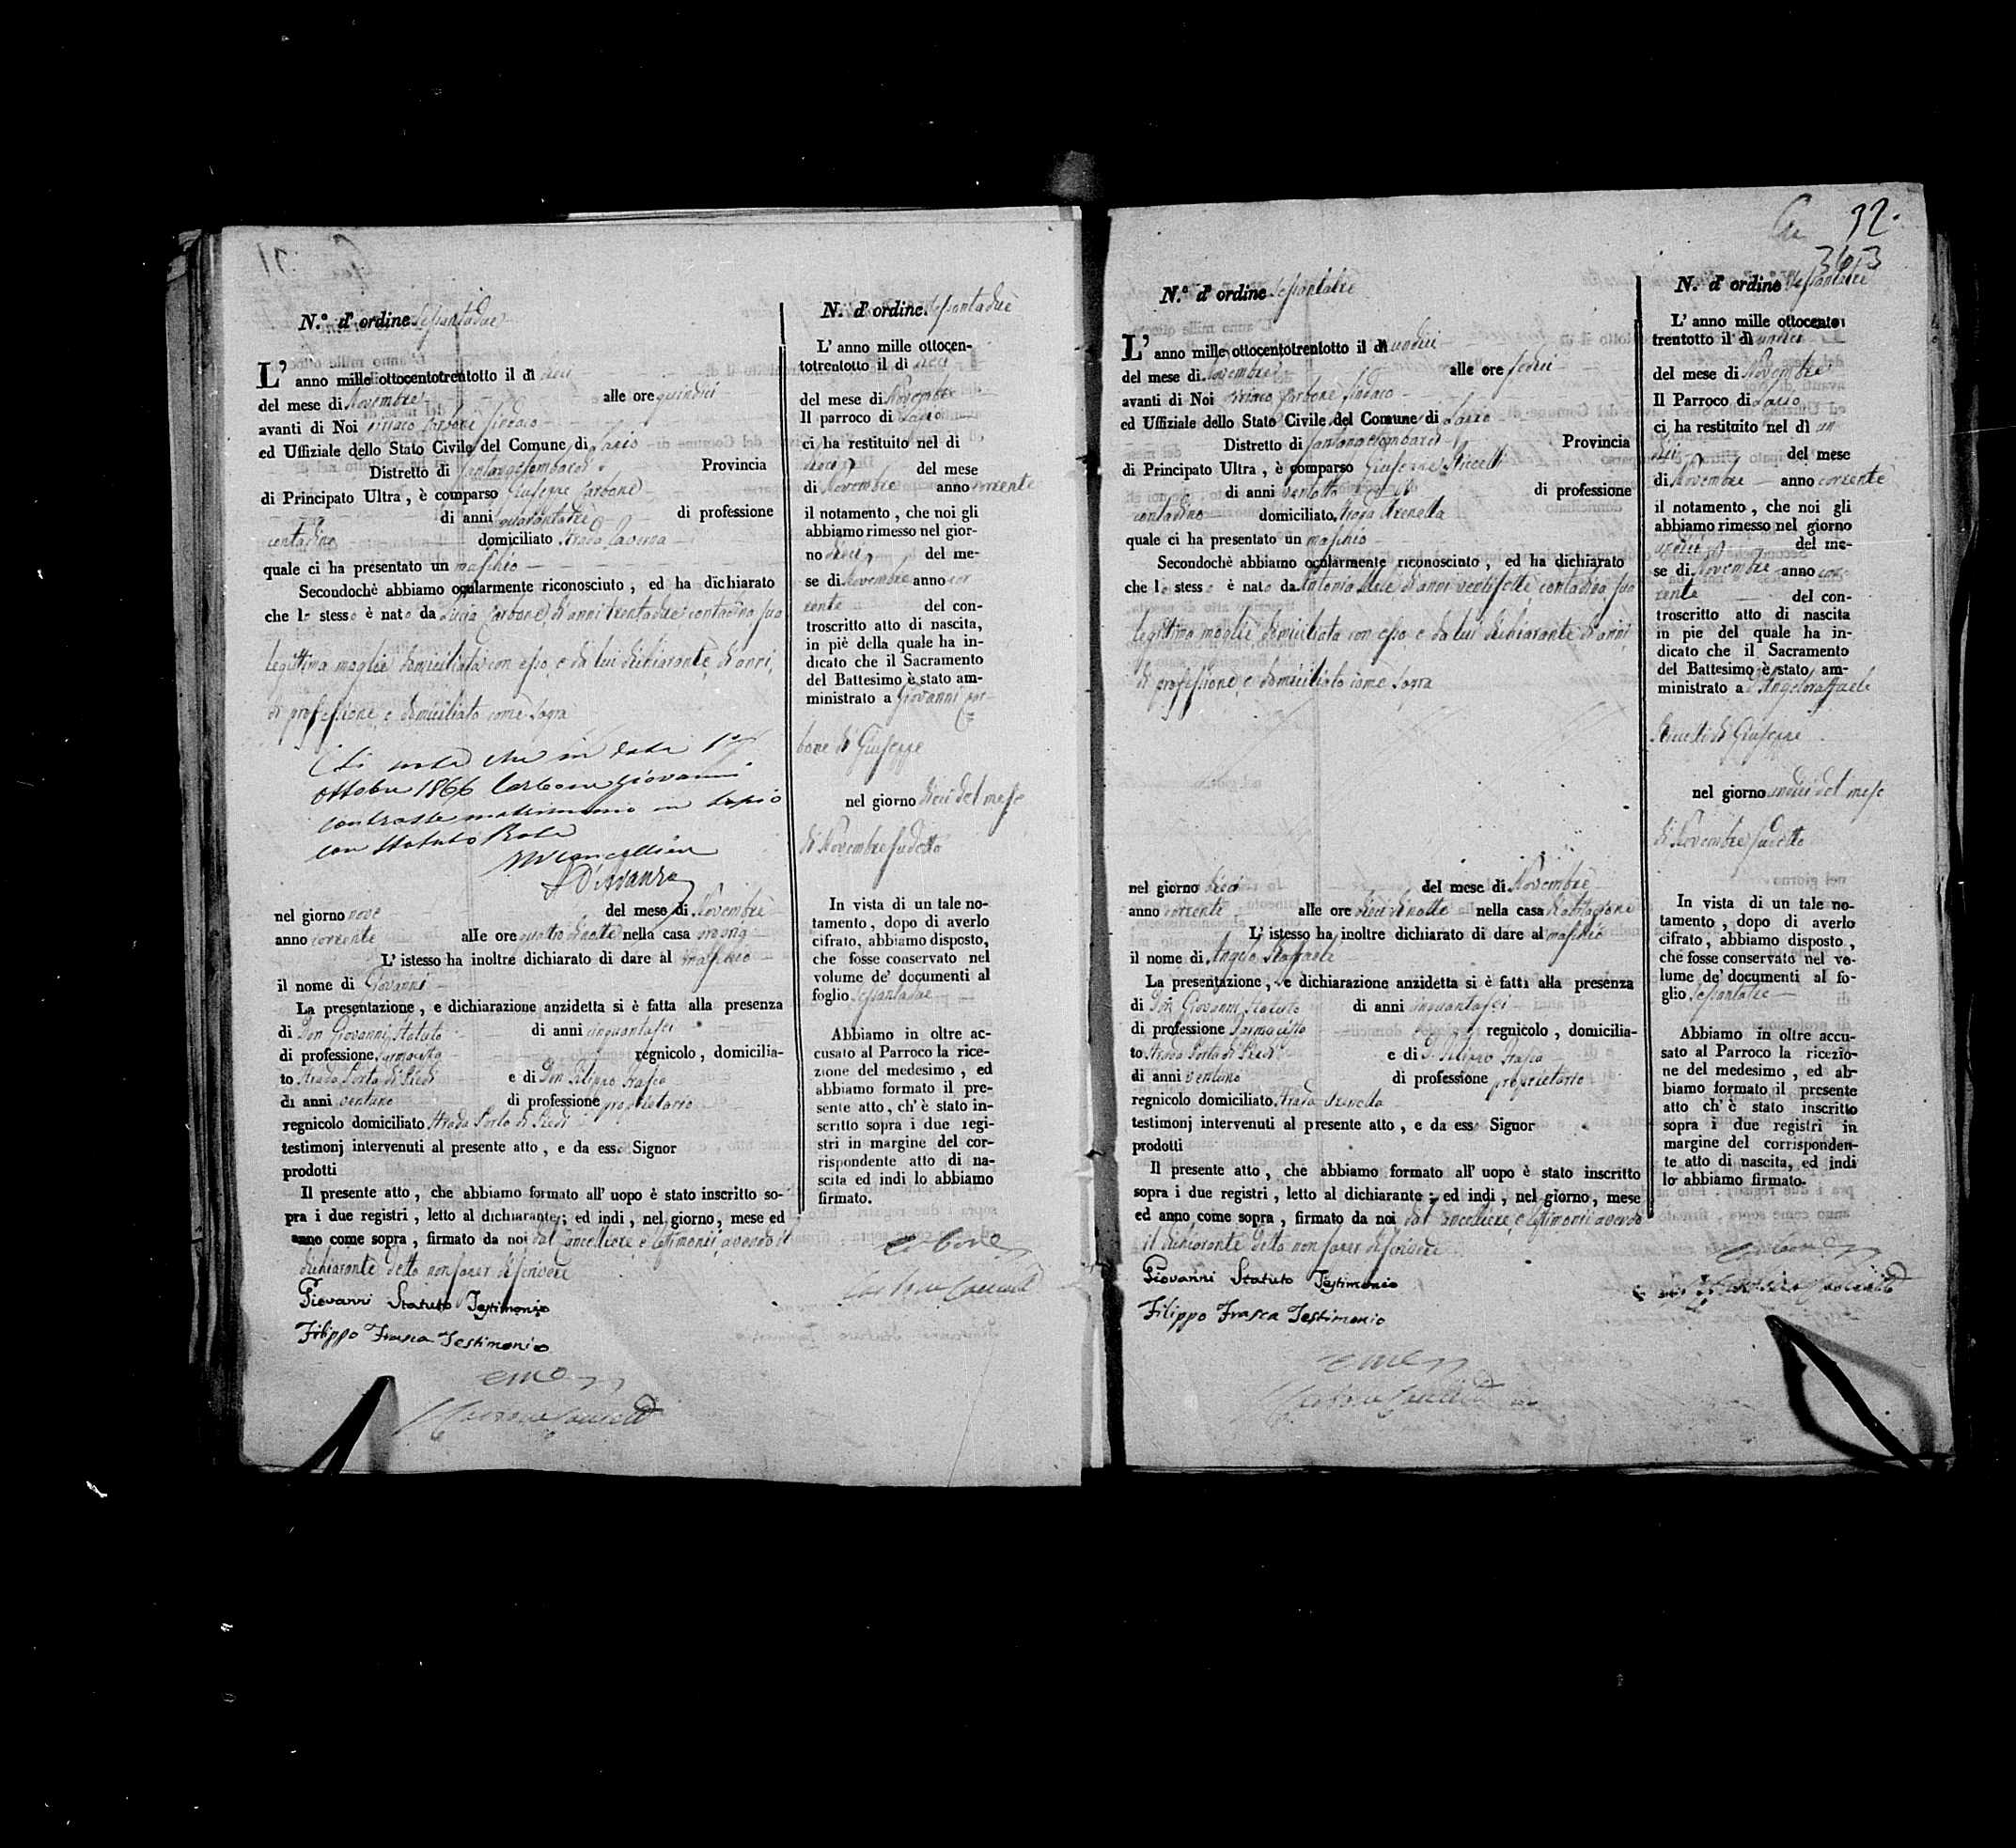 N.° d' ordine sessantadue
L' anno mille ottocentotrentotto il dì dieci
del mese di Novembre alle ore quindici
avanti di Noi Ciriaco Carbone Sindaco
ed Uffiziale dello Stato Civile del Comune di Lacio
Distretto di Santangelombardi Provincia
di Principato Ultra , è comparso Giuseppe Carbone
di anni quarantatre di professione
contadino domiciliato strada Taverna
quale ci ha presentato un maschio
Secondochè abbiamo ocularmente riconosciuto , ed ha dichiarato
che lo stesso è nato da Lucia Carbone di anni trentadue contadina sua
legittima moglie domiciliata con esso e da lui dichiarante di anni,
di professione e domiciliato come sopra
Si nota che in data 1°
Ottobre 1866 Carbone Giovanni
contrasse matrimonio in
con Statuto Rosa
Il Cancelliere
D'Avanzo
nel giorno nove del mese di Novembre
anno corrente alle ore quattro di notte nella casa
L' istesso ha inoltre dichiarato di dare al maschio
il nome di Giovanni
La presentazione , e dichiarazione anzidetta si è fatta alla presenza
di Don Giovanni Statuto di anni cinquantasei
di professione Farmacista regnicolo , domicilia-
to strada Porta di Piedi e di Don Filippo Frasca
di anni ventuno di professione proprietario
regnicolo domiciliato strada Porta di Piedi
testimonj intervenuti al presente atto , e da esso Signor
prodotti
Il presente atto , che abbiamo formato all' uopo è stato inscritto so-
pra i due registri , letto al dichiarante ; ed indi , nel giorno , mese ed
anno come sopra , firmato da noi dal Cancelliere e testimonii avendo il
dichiarante detto non saper di scrivere
Giovanni Statuto Testimonio
Filippo Frasca Testimonio
N. d' ordine. sessantadue
L' anno mille ottocen-
totrentotto il dì dieci
del mese di Novembre
Il parroco di Lacio
ci ha restituito nel dì
dieci del mese
di Novembre anno corrente
il notamento , che noi gli
abbiamo rimesso nel gior-
no dieci del me-
se di Novembre anno cor
rente del con-
troscritto atto di nascita,
in piè della quale ha in-
dicato che il Sacramento
del Battesimo è stato am-
ministrato a Giovanni Car
bone di Giuseppe
nel giorno dieci del mese
di Novembre sudetto
In vista di un tale no-
tamento , dopo di averlo
cifrato, abbiamo disposto,
che fosse conservato nel
volume de' documenti al
foglio sessantadue
Abbiamo in oltre ac-
cusato al Parroco la rice-
zione del medesimo , ed
abbiamo formato il pre-
sente atto, ch' è stato in-
scritto sopra i due regi-
stri in margine del cor-
rispondente atto di na-
scita ed indi lo abbiamo
firmato.
32.
363
N.° d' ordine sessantatre
L' anno mille ottocentotrentotto il dì undici
del mese di Novembre alle ore sedici
avanti di Noi Ciriaco Carbone Sindaco
ed Uffiziale dello Stato Civile del Comune di Lacio
Distretto di Santangelombardi Provincia
di Principato Ultra , è comparso Giuseppe
di anni ventotto di professione
contadino domiciliato strada Arenella
quale ci ha presentato un maschio
Secondochè abbiamo ocularmente riconosciuto , ed ha dichiarato
che lo stesso è nato da Antonia di anni ventisette contadina sua
legittima moglie domiciliata con esso e da lui dichiarante di anni
di professione e domiciliato come sopra
nel giorno dieci del mese di Novembre
anno corrente alle ore dieci di notte nella casa di abitazione
L' istesso ha inoltre dichiarato di dare al maschio
il nome di Angelo Raffaele
La presentazione , e dichiarazione anzidetta si è fatta alla presenza
di Don Giovanni Statuto di anni cinquantasei
di professione Farmacista regnicolo , domicilia-
to strada Porta di Piedi e di D. Filippo Frasca
di anni ventuno di professione proprietario
regnicolo domiciliato strada Arenella
testimonj intervenuti al presente atto , e da esso Signor
prodotti
Il presente atto , che abbiamo formato all' uopo è stato inscritto
sopra i due registri , letto al dichiarante ; ed indi , nel giorno , mese
ed anno come sopra , firmato da noi dal Cancelliere e testimonii avendo
il dichiarante detto non saper di scrivere
Giovanni Statuto Testimonio
Filippo Frasca Testimonio
N. d' ordine sessantatre
L' anno mille ottocento
trentotto il dì undici
del mese di Novembre
Il Parroco di Lacio
ci ha restituito nel dì un
dici del mese
di Novembre anno corrente
il notamento , che noi gli
abbiamo rimesso nel giorno
undici del me-
se di Novembre anno cor
rente del con-
troscritto atto di nascita
in pie del quale ha in-
dicato che il Sacramento
del Battesimo è stato am-
ministrato a Angeloraffaele
di Giuseppe
nel giorno undici del mese
di Novembre sudetto
In vista di un tale no-
tamento , dopo di averlo
cifrato , abbiamo disposto ,
che fosse conservato nel vo-
lume de' documenti al fo-
glio sessantatre
Abbiamo in oltre accu-
sato al Parroco la ricezio-
ne del medesimo , ed ab-
biamo formato il presente
atto ch' è stato inscritto
sopra i due registri in
margine del corrisponden-
te atto di nascita, ed indi
lo abbiamo firmato.